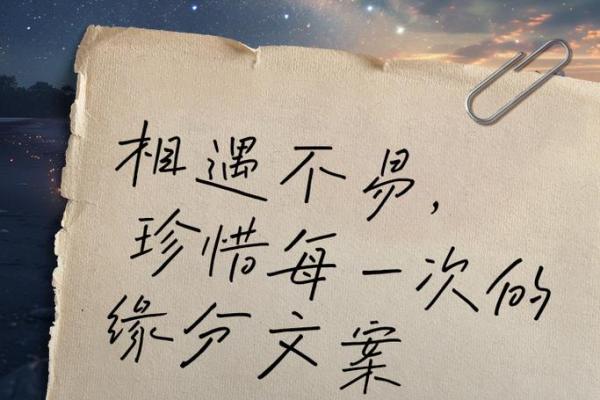 相遇不易，
珍惜每一次的
缘分文案